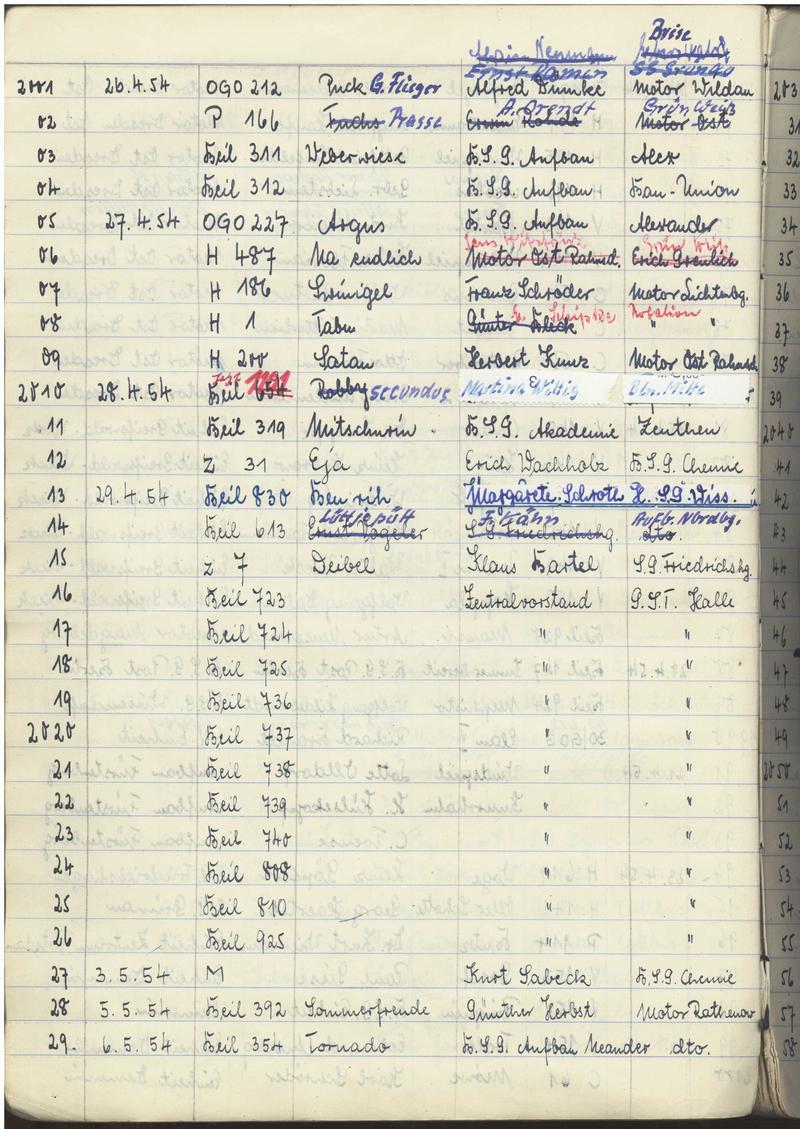 Brise
Ernst Ramin SG Grünau
2001 26.4.54 OGO 212 Puck G. Flieger Alfred Dumke Motor Wildau 203
A. Arendt Grün. Weiß
02 P 166 Fuchs Prasse Erwin Rohde Motor Ost 31
03 Beil 311 Weberwiese B.S.G. Aufbau Alex 32
04 Beil 312 B.S.G. Aufbau Bau-Union 33
05 27.4.54 OGO 227 Argus B.S.G. Aufbau Alexander 34
Grün Weiß
06 H 487 Na endlich Motor Ost Rahnsd. Erich Greulich 35
07 H 186 Swinigel Franz Schröder Motor Lichtenbg. 36
Rotation
08 H 1 Tabu Günter Fleck " " 37
09 H 200 Satan Herbert Kunz Motor Ost Rahnsd 38
jetzt 1291
2010 28.4.54 Beil 654 Robby secundus Martina Wittig Bln. Mitte 39
11 Beil 319 Mitschurin B.S.G. Akademie Zeuthen 2040
12 Z 31 Eja Erich Wachholz B.S.G. Chemie 41
13 29.4.54 Beil 830 Ben rih Margarete Schroth H.S.G Wiss. u 42
Lüttjepütt F. Kähn Aufb. Nordbg.
14 Beil 613 Ernst Vogeler S.G. Friedrichshg. dto. 43
15 Z 7 Deibel Klaus Bartel S.G Friedrichshg. 44
16 Beil 723 Zentralvorstand G.S.T. Halle 45
17 Beil 724 " " 46
18 Beil 725 " " 47
19 Beil 736 " " 48
2020 Beil 737 " " 49
21 Beil 738 " " 2050
22 Beil 739 " " 51
23 Beil 740 " " 52
24 Beil 808 " " 53
25 Beil 810 " " 54
26 Beil 925 " " 55
27 3.5.54 M Kurt Sabeck B.S.G. Chemie 56
28 5.5.54 Beil 392 Sommerfreude Günther Herbst Motor Rathenow 57
29. 6.5.54 Beil 354 Tornado B.S.G. Aufbau Neander dto. 58